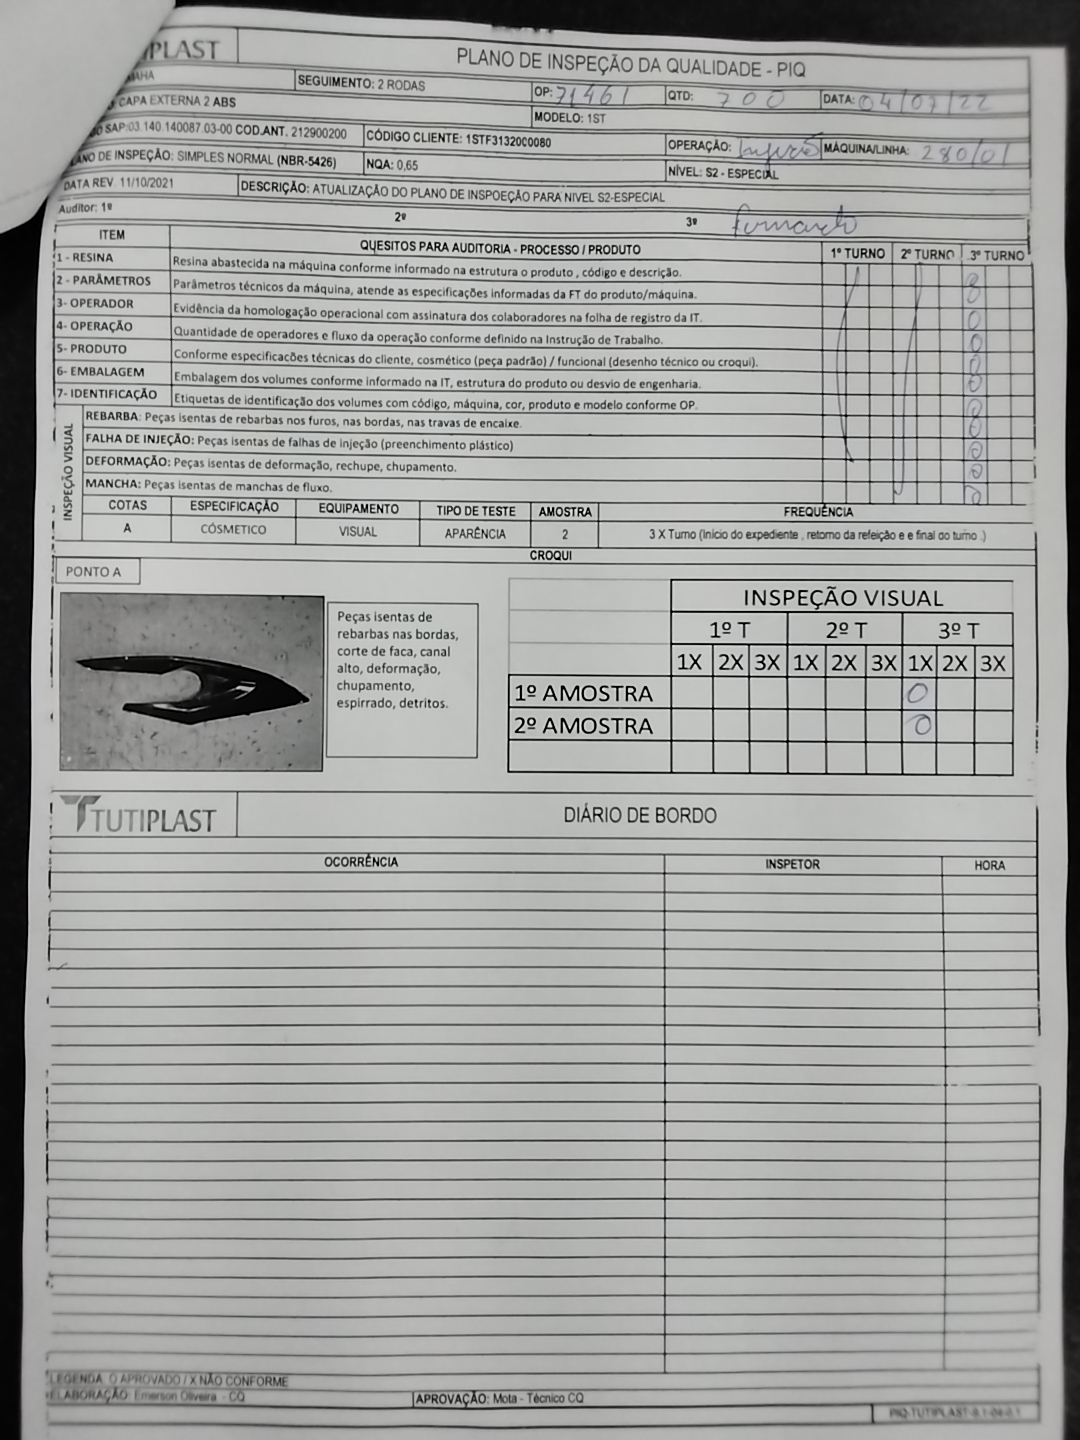 PLAST
PLANO DE INSPEÇÃO DA QUALIDADE - PIQ
MAHA
SEGUIMENTO: 2 RODAS
OP: 71461
QTD: 700
DATA: 04/07/22
CAPA EXTERNA 2 ABS
MODELO: 1ST
SAP:03.140.140087.03-00 COD.ANT. 212900200
CÓDIGO CLIENTE: 1STF3132000080
OPERAÇÃO: Injeção
MÁQUINA/LINHA: 280/01
ANO DE INSPEÇÃO: SIMPLES NORMAL (NBR-5426)
NQA: 0,65
NÍVEL: S2 - ESPECIAL
DATA REV. 11/10/2021
DESCRIÇÃO: ATUALIZAÇÃO DO PLANO DE INSPOEÇÃO PARA NIVEL S2-ESPECIAL
Auditor: 1º
2º
3º Fernando
ITEM
QUESITOS PARA AUDITORIA - PROCESSO / PRODUTO
1º TURNO
2º TURNO
3º TURNO
1 - RESINA
Resina abastecida na máquina conforme informado na estrutura o produto , código e descrição.
2 - PARÂMETROS
Parâmetros técnicos da máquina, atende as especificações informadas da FT do produto/máquina.
3- OPERADOR
Evidência da homologação operacional com assinatura dos colaboradores na folha de registro da IT.
4- OPERAÇÃO
Quantidade de operadores e fluxo da operação conforme definido na Instrução de Trabalho.
5- PRODUTO
Conforme especificacões técnicas do cliente, cosmético (peça padrão) / funcional (desenho técnico ou croqui).
6- EMBALAGEM
Embalagem dos volumes conforme informado na IT, estrutura do produto ou desvio de engenharia.
7- IDENTIFICAÇÃO
Etiquetas de identificação dos volumes com código, máquina, cor, produto e modelo conforme OP.
INSPEÇÃO VISUAL
REBARBA: Peças isentas de rebarbas nos furos, nas bordas, nas travas de encaixe.
FALHA DE INJEÇÃO: Peças isentas de falhas de injeção (preenchimento plástico)
DEFORMAÇÃO: Peças isentas de deformação, rechupe, chupamento.
MANCHA: Peças isentas de manchas de fluxo.
COTAS
ESPECIFICAÇÃO
EQUIPAMENTO
TIPO DE TESTE
AMOSTRA
FREQUÊNCIA
A
CÓSMETICO
VISUAL
APARÊNCIA
2
3 X Turno (Início do expediente , retorno da refeição e e final do turno .)
CROQUI
PONTO A
Peças isentas de
rebarbas nas bordas,
corte de faca, canal
alto, deformação,
chupamento,
espirrado, detritos.
INSPEÇÃO VISUAL
1º T 2º T 3º T
1X 2X 3X 1X 2X 3X 1X 2X 3X
1º AMOSTRA 0
2º AMOSTRA 0
TUTIPLAST
DIÁRIO DE BORDO
OCORRÊNCIA
INSPETOR
HORA
LEGENDA O APROVADO / X NÃO CONFORME
ELABORAÇÃO: Emerson Oliveira - CQ
APROVAÇÃO: Mota - Técnico CQ